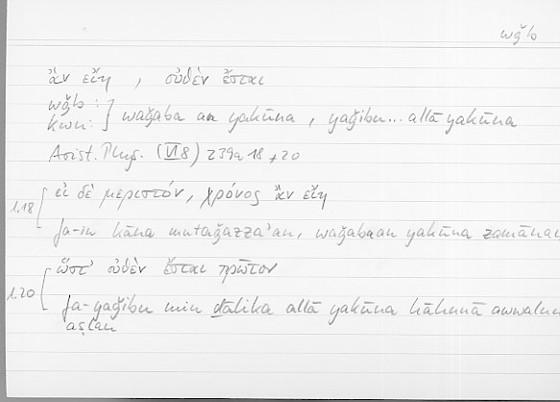 wǧb
ἂν εἴη , οὐθὲν ἔσται
wǧb :
kwn : } waǧaba an yakūna , yaǧibu... allā yakūna
Arist. Phys. (VI 8) 239a 18 + 20
l.18 [ εἰ δὲ μεριστόν, χρόνος ἂν εἴη
fa-in kāna mutaǧazzaʾan, waǧaba an yakūna zamānan
l.20 [ ὥστ᾽ οὐθὲν ἔσται πρῶτον
fa-yaǧibu min ḏālika allā yakūna hāhunā awwalun
aṣlan